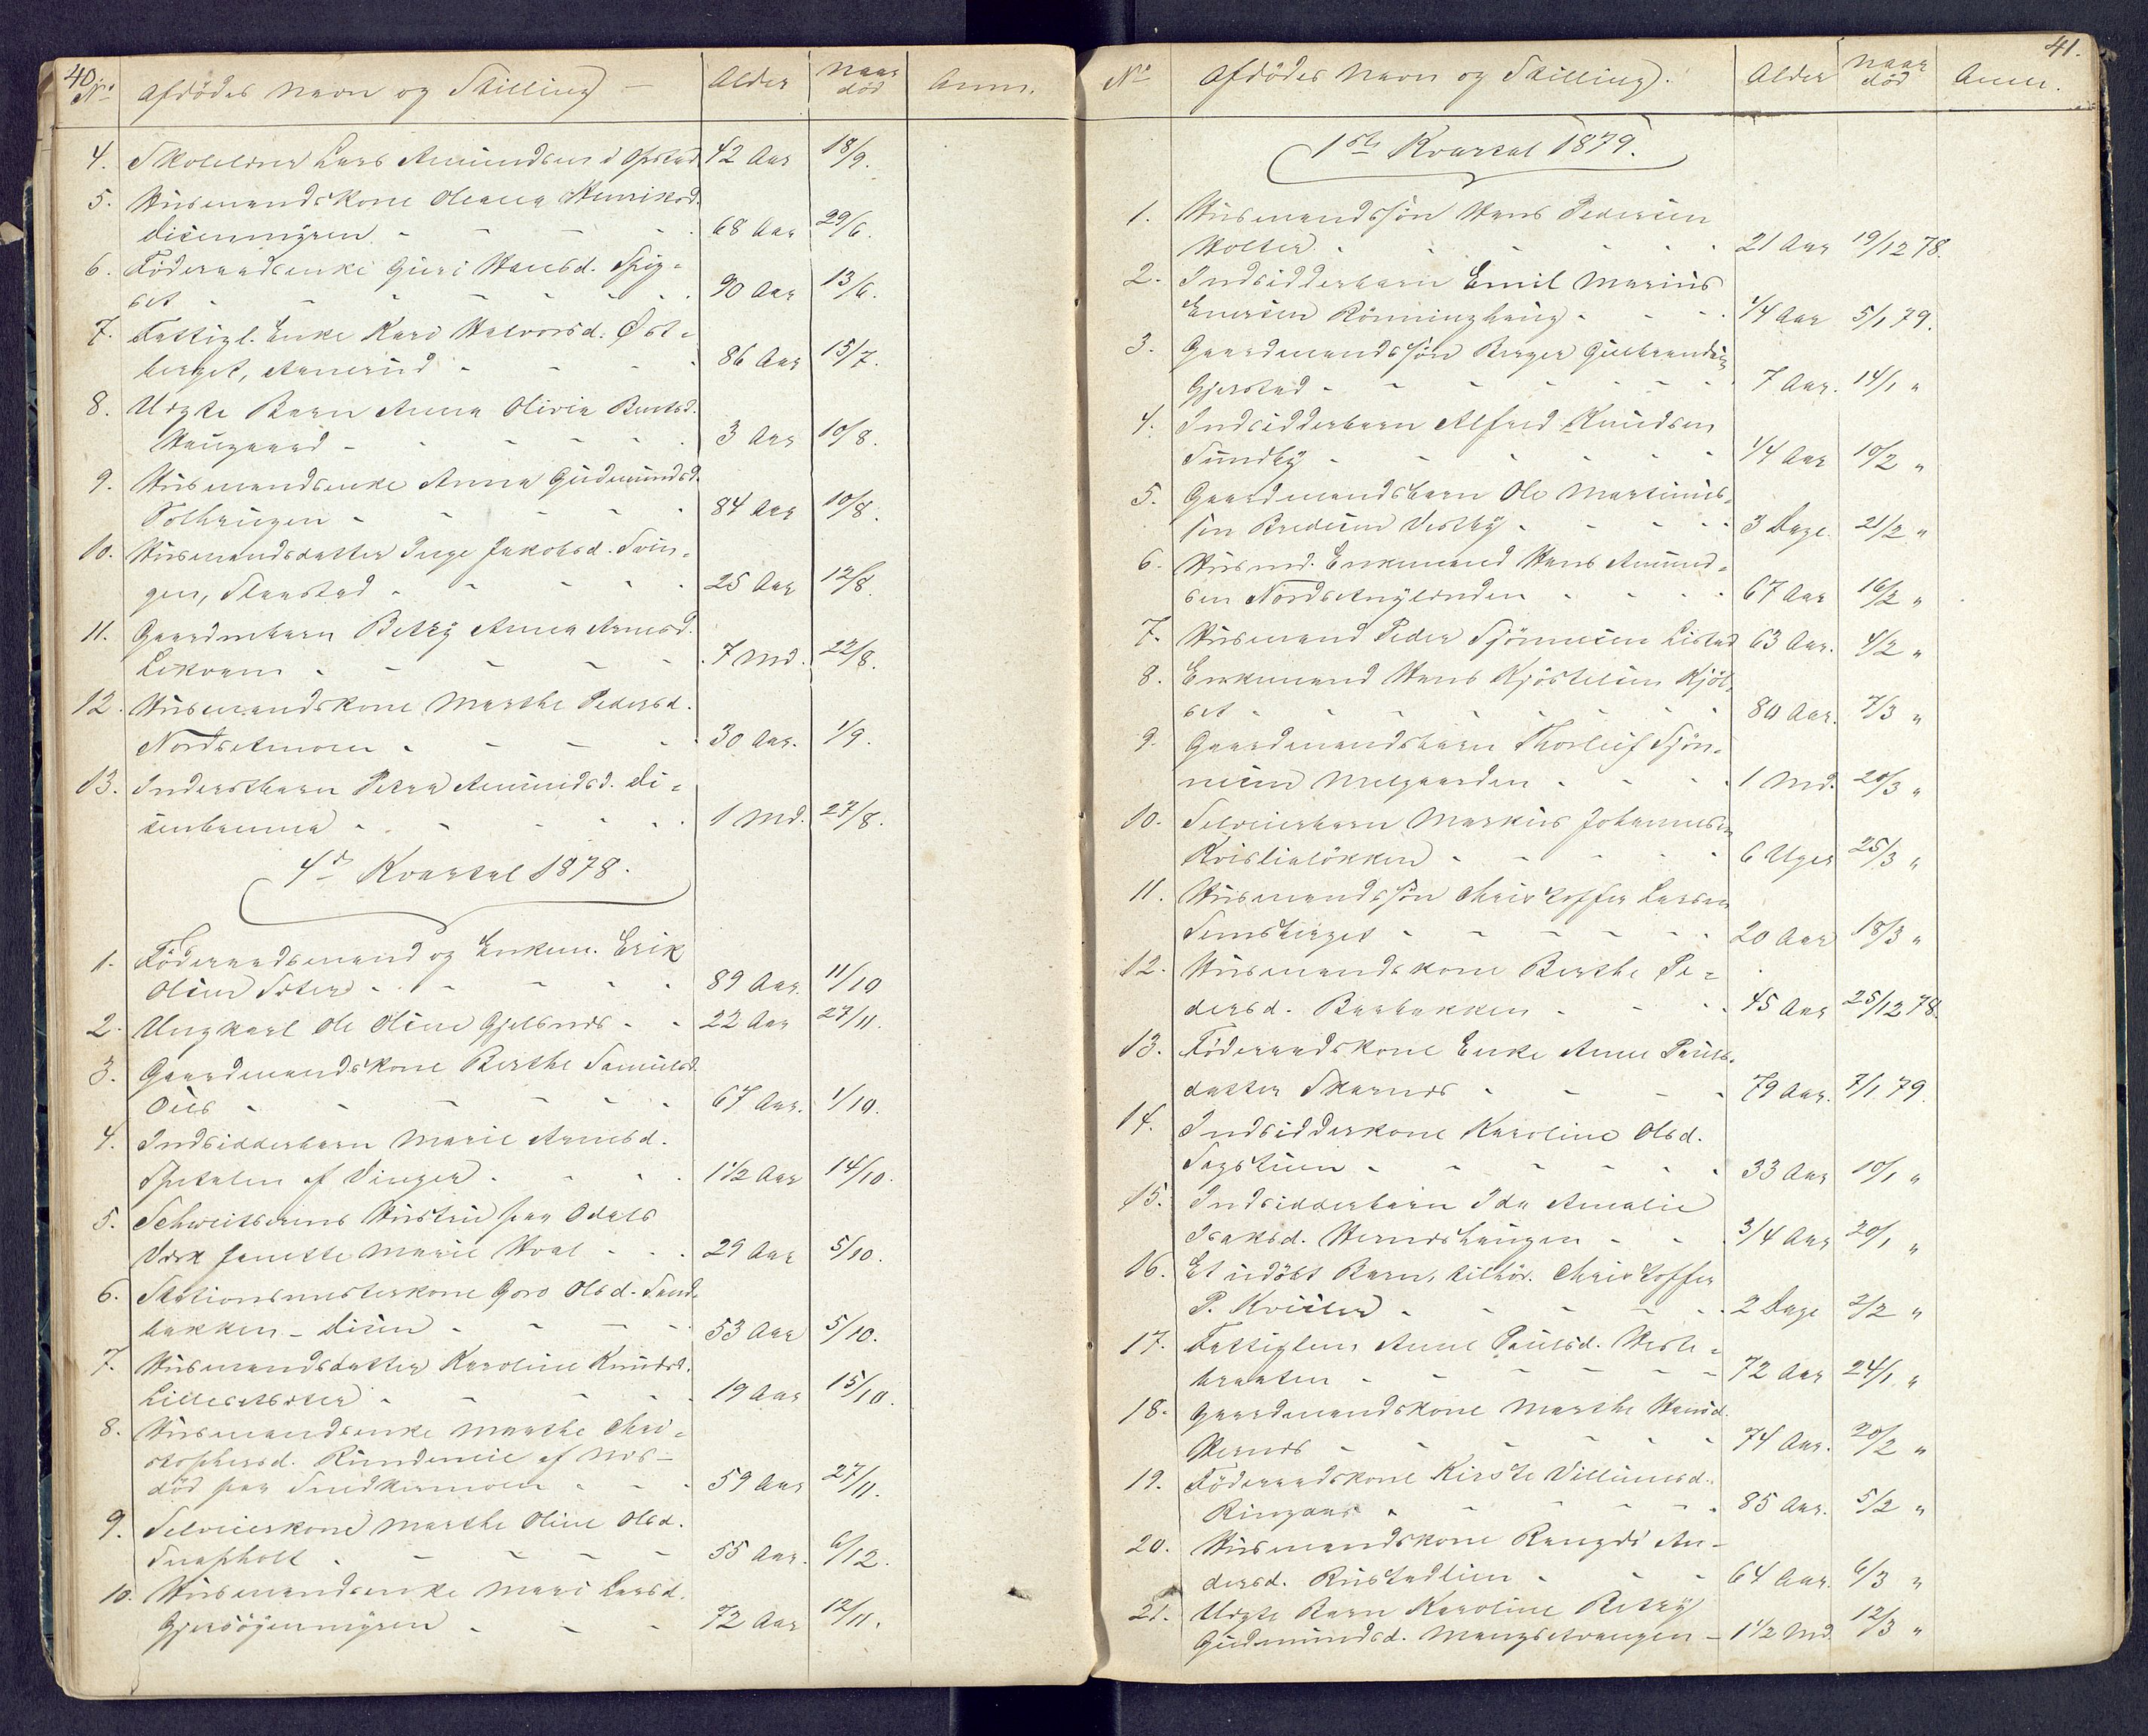 40.
No Afdödes Navn og Stilling Alder Naar död Anm.
4. Skolelærer Lars Amundsen i Opstad 42 Aar 18/9.
5. Husmandskone Oleana Henriksd.
Disenmyren 68 Aar 29/6.
6. Föderaadsenke Guri Hansd. Spig-
set 90 Aar 13/6.
7. Fattigl. Enke Kari Halvorsd. Öst-
berget, Arnerud 86 Aar 15/7.
8. Uægte Barn Anna Olivia Berntsd.
Haugaard 3 Aar 10/8.
9. Husmandsenke Anna Gudmundsd.
Tolhaugen 84 Aar 10/8.
10. Husmandsdatter Inge Jakobsd. Svin-
gen, Skanstad 25 Aar 12/8.
11. Gaardmbarn Betzy Anna Arnesd.
Lekvam 7 Md. 22/8.
12. Husmandskone Marthe Pedersd.
Nordsetmoen 30 Aar. 1/9.
13. Inderstbarn Petra Amundsd. Di-
senbanna 1 Md. 27/8.
4de Kvartal 1878.
1. Föderaadsmand og Enkem. Erik
Olsen Sæter 89 Aar. 11/10
2. Ungkarl Ole Olsen Gjelsnes 22 Aar 27/11.
3. Gaardmandskone Berthe Samuelsd.
Ous 67 Aar. 1/10.
4. Indsidderbarn Marie Arnesd.
Spetalen af Vinger 1 1/2 Aar 14/10.
5. Schweitserens Hustru paa Odals
Værk Janette Marie Hval 29 Aar 5/10.
6. Stationsmesterkone Goro Olsd. Sand-
bakken - Disen 53 Aar 5/10.
7. Husmandsdatter Karoline Knudsd.
Lillesetsæter 19 Aar 15/10.
8. Husmandsenke Marthe Chri-
stophersd. Rundeneie af Nes-
död paa Sandkermoen 59 Aar 27/11.
9. Selveierkone Marthe Oline Olsd.
Snapholt 55 Aar. 6/12.
10. Husmandsenke Mari Larsd.
Gjersöyenmyren 72 Aar 12/11.
41.
No Afdödes Navn og Stilling. Alder Naar död Anm.
1ste Kvartal 1879.
1. Husmandssön Hans Pedersen
Holter 21 Aar 19/12 78.
2. Indsidderbarn Emil Marius
Enersen Rönninghaug 1/4 Aar 5/1 79.
3. Gaardmandssön Birger Gulbrandsen
Gjerstad 7 Aar. 14/1 "
4. Indsidderbarn Alfred Knudsen
Sundby 1/4 Aar 10/2 "
5. Gaardmandsbarn Ole Martinius-
sen Bredesen Vestby 3 Dage 21/2 "
6. Husmd. Enkemand Hans Amund-
sen Nordsetnylænden 67 Aar 16/2 "
7. Husmand Peder Sjönnesen Listad 63 Aar. 4/2 "
8. Enkemand Hans Kjöstelsen Kjöl-
set 80 Aar. 7/3 "
9. Gaardmandsbarn Thorleif Sjön-
nesen Melgaarden 1 Md. 20/3 "
10. Selveierbarn Markus Johannesen
Kvislalökken 6 Uger 25/3 "
11. Husmandssön Christoffer Larsen
Semsberget 20 Aar 18/3 "
12. Husmandskone Berthe Pe-
dersd. Berbakken 45 Aar 25/12 78.
13. Föderaadskone Enke Anne Pauls-
datter Skarnes 79 Aar. 7/1 79.
14. Indsidderkone Karoline Olsd.
Sagstuen 33 Aar 10/1 "
15. Indsidderbarn Ida Amalie
Isaksd. Herneshaugen 3/4 Aar 20/1 "
16. Et udöbt Barn, tilhör. Christoffer
P. Kvisler 2 Dage 2/2 "
17. Fattiglem Anne Paulsd. Vesle-
braaten 72 Aar 24/1 "
18. Gaardmandskone Marthe Hansd.
Hernes 74 Aar. 20/2 "
19. Föderaadskone Kirsti Villumsd.
Ringaas 85 Aar. 5/2 "
20. Husmandskone Rangdi An-
dersd. Rustadlien 64 Aar. 6/3 "
21. Uægte Barn Karoline Betzy
Gudmundsd. Mangsetvangen 1 1/2 Md. 12/3 "